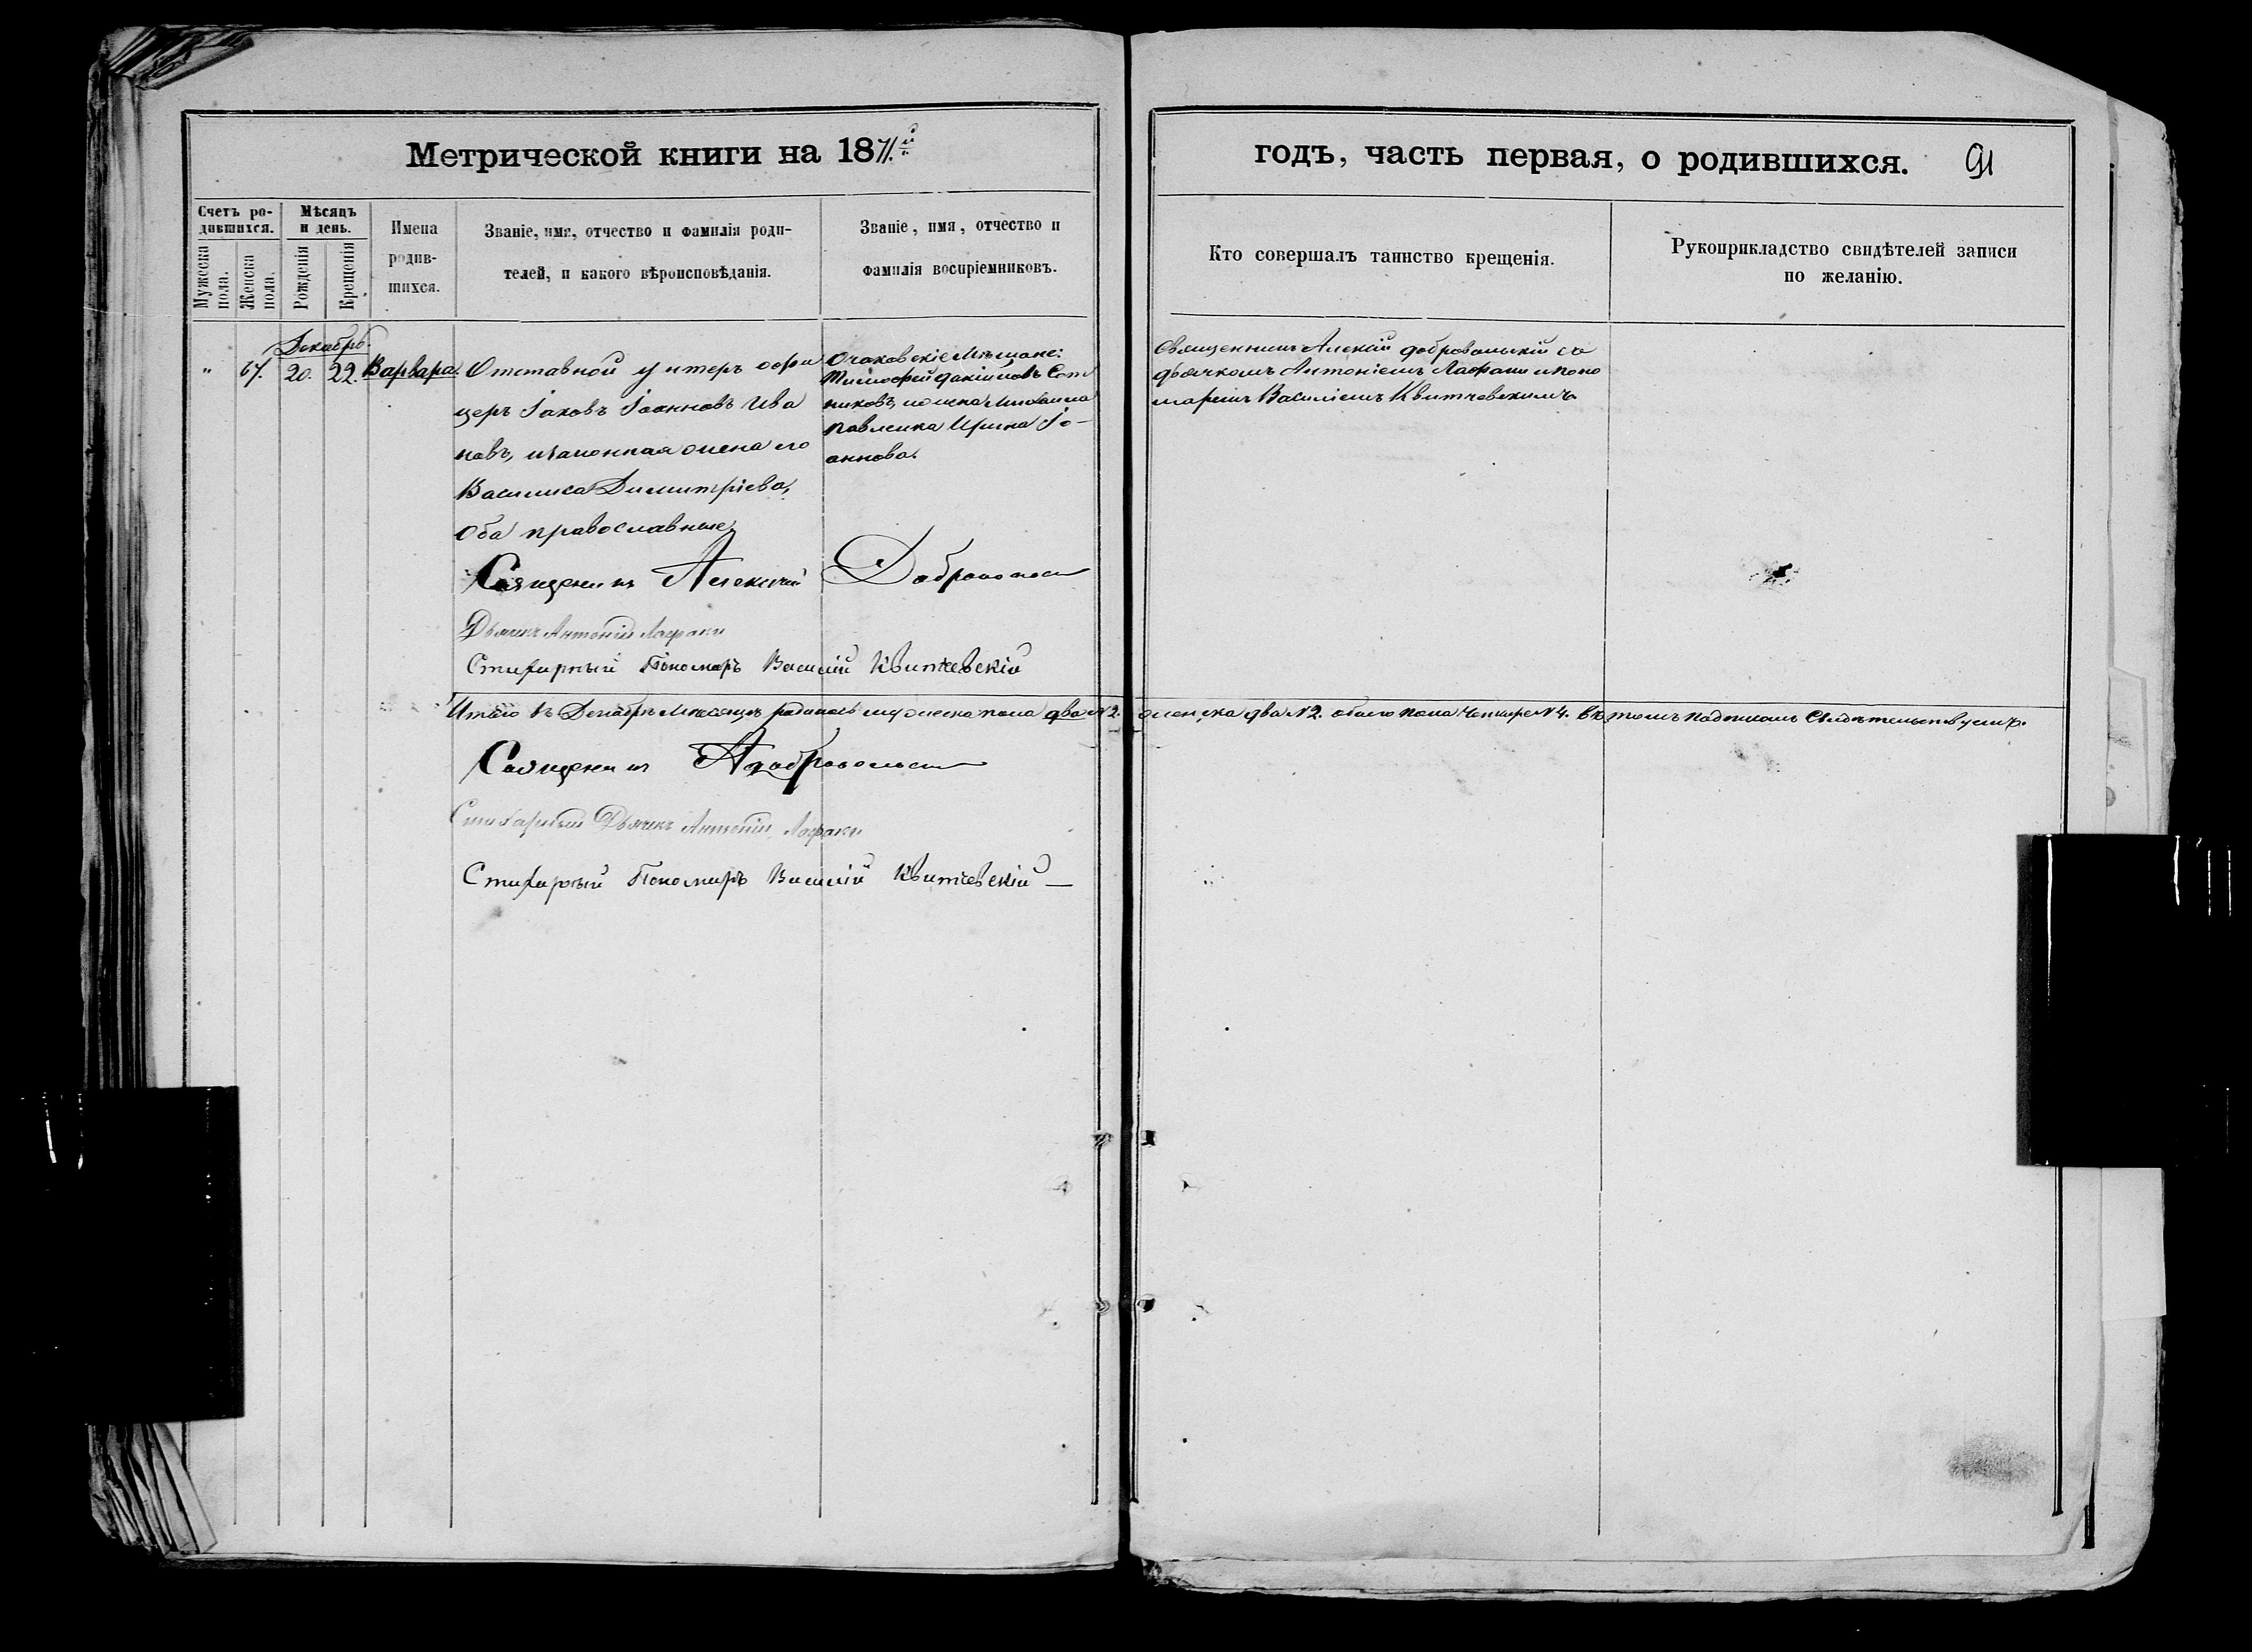 Метрической книги на 1871.й
годъ, часть первая, о родившихся.
91
Счетъ ро-
дившихся.
Мужеска
пола.
Женска
пола.
Мѣсяцъ
и день.
Рожденія
Крещенія
Имена
родив-
шихся.
Званіе, имя, отчество и фамилія роди-
телей, и какого вѣроисповѣданія.
Званіе, имя, отчество и
фамилія воспріемниковъ.
Кто совершалъ таинство крещенія.
Рукоприкладство свидѣтелей записи
по желанію.
Декабрь.
"
67.
20.
22.
Варвара.
Отставной унтеръ офи
церъ Іаковъ Іоанновъ Ива
новъ, и законная жена его
Василиса Димитріева,
Оба православные,
Очаковскіе Мѣщане:
Тимофей Сот
никовъ, и жена Михаила
Павленка Ирина Іо-
аннова.
Священникъ Алексій Добровольскій со
дьячкомъ Антоніемъ Лафаки и поно
маремъ Василіемъ Квитчевскимъ
Священникъ Алексій Добровольск
Дьячикъ Антоній Лафаки
Стихарный Пономарь Василій Квитчевскій
Итого въ Декабрѣ Мѣсяцѣ родилось мужеска пола два N2. женска два N2. обоего пола четыре N4. въ томъ подписомъ Свидѣтельствуемъ.
Священникъ А Добровольск
Стихарный Дьячикъ Антоній Лафаки
Стихарный Пономарь Василій Квитчевскій —